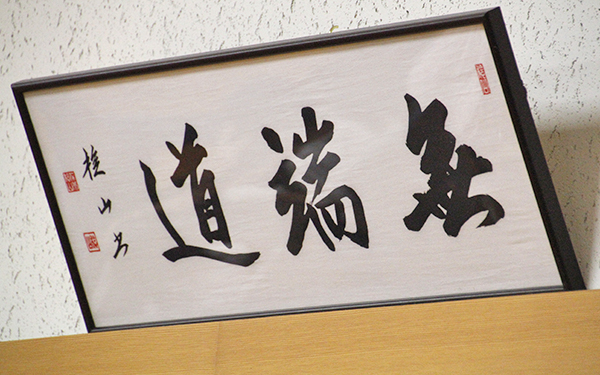 無端道
桂山书